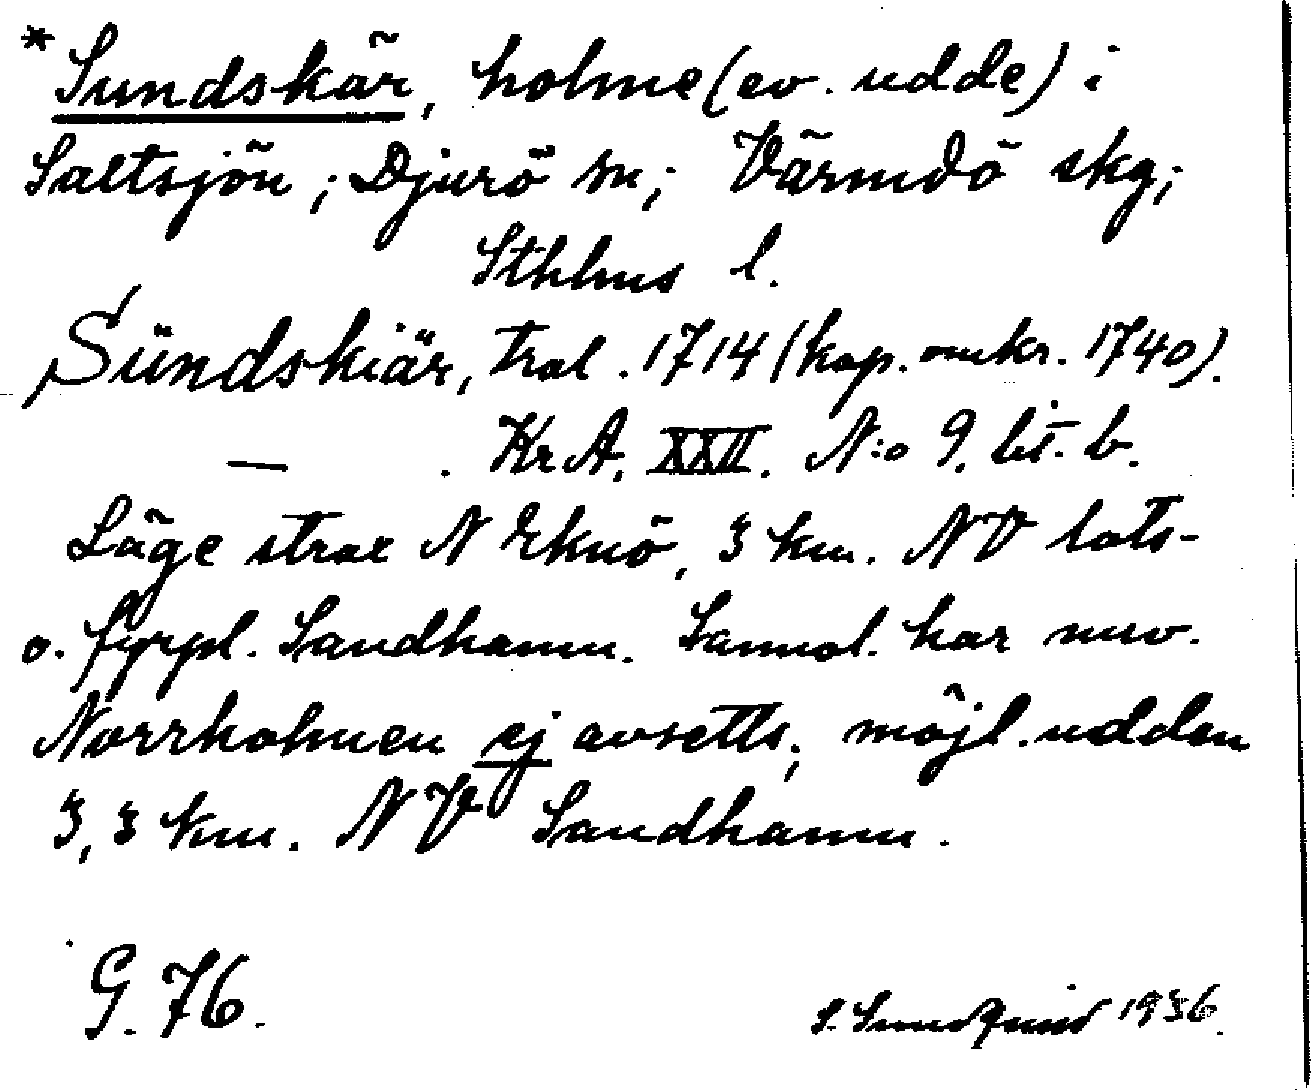 * Sundskär, holme (ev. udde) i
Saltsjön; Djurö sn; Värmdö skg;
Sthlms l.
Sündskiär, tral. 1714 (kop. omkr. 1740).
— . KrA. XXII. N:o 9. lit. b.
Läge strax N Eknö, 3 km. NV lots-
o. fyrpl. Sandhamn. Sannol. har nuv.
Norrholmen ej avsetts, möjl. udden
3,3 km. NV Sandhamn.
G. 76.
S. Sundquist 1936.